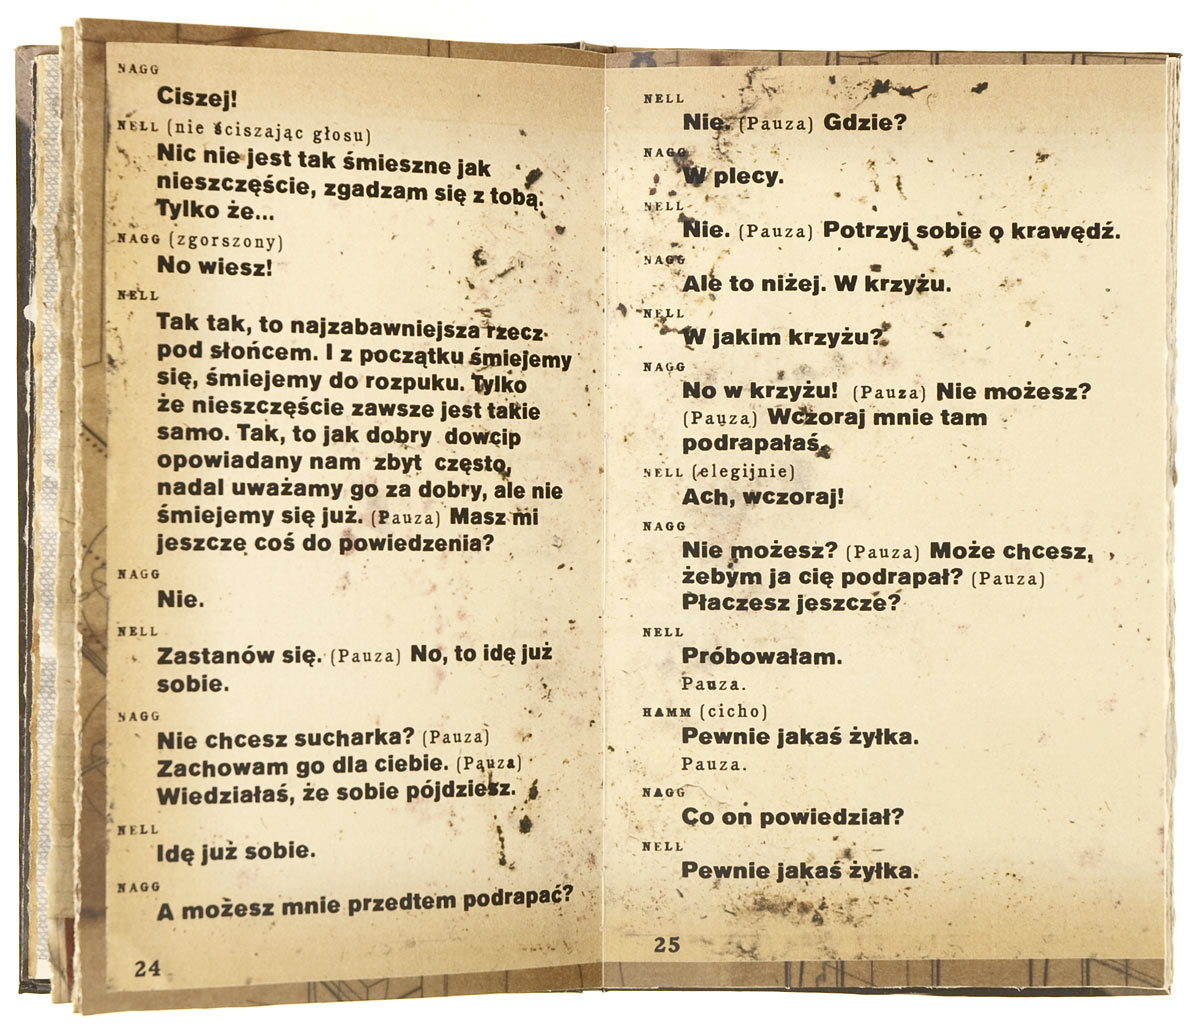 NAGG
Ciszej!
NELL (nie ściszając głosu)
Nic nie jest tak śmieszne jak
nieszczęście, zgadzam się z tobą.
Tylko że...
NAGG (zgorszony)
No wiesz!
NELL
Tak tak, to najzabawniejsza rzecz
pod słońcem. I z początku śmiejemy
się, śmiejemy do rozpuku. Tylko
że nieszczęście zawsze jest takie
samo. Tak, to jak dobry dowcip
opowiadany nam zbyt często,
nadal uważamy go za dobry, ale nie
śmiejemy się już. (Pauza) Masz mi
jeszcze coś do powiedzenia?
NAGG
Nie.
NELL
Zastanów się. (Pauza) No, to idę już
sobie.
NAGG
Nie chcesz sucharka? (Pauza)
Zachowam go dla ciebie. (Pauza)
Wiedziałaś, że sobie pójdziesz.
NELL
Idę już sobie.
NAGG
A możesz mnie przedtem podrapać?
24
NELL
Nie. (Pauza) Gdzie?
NAGG
W plecy.
NELL
Nie. (Pauza) Potrzyj sobie o krawędź.
NAGG
Ale to niżej. W krzyżu.
NELL
W jakim krzyżu?
NAGG
No w krzyżu! (Pauza) Nie możesz?
(Pauza) Wczoraj mnie tam
podrapałaś.
NELL (elegijnie)
Ach, wczoraj!
NAGG
Nie możesz? (Pauza) Może chcesz,
żebym ja cię podrapał? (Pauza)
Płaczesz jeszcze?
NELL
Próbowałam.
Pauza.
HAMM (cicho)
Pewnie jakaś żyłka.
Pauza.
NAGG
Co on powiedział?
NELL
Pewnie jakaś żyłka.
25